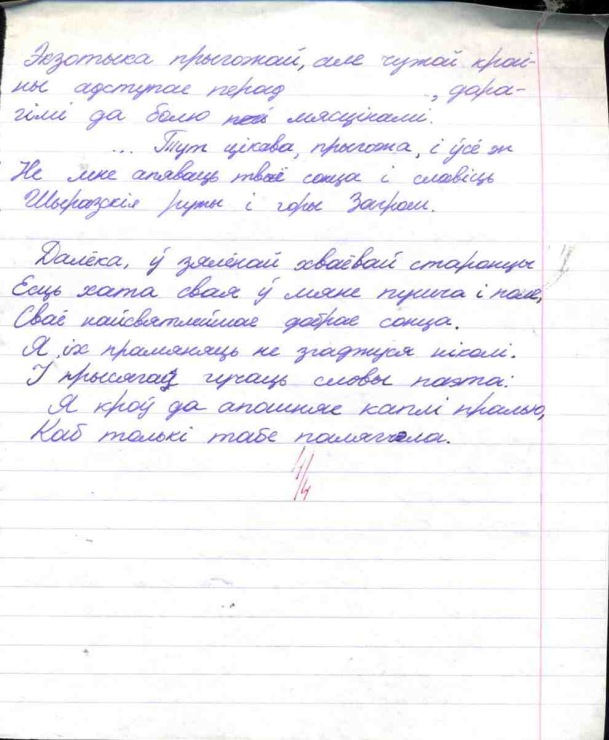 Экзотыка прыгожай, але чужой краі-
ны адступае перад , дара-
гімі да болю мясцінамі.
... Тут цікава, прыгожа, і ўсё ж
Не мне апяваць тваё сонца і славіць
Шыразскія ружы і горы Загром.
Далёка, ў зялёнай хваёвай старонцы
Ёсць хата свая ў мяне пушча і поле,
Сваё найсвятлейшае добрае сонца.
Я іх прамяняць не згаджуся ніколі.
І прысягай гучаць словы паэта:
Я кроў да апошняе каплі пралью,
Каб толькі табе палягчэла.
4/4